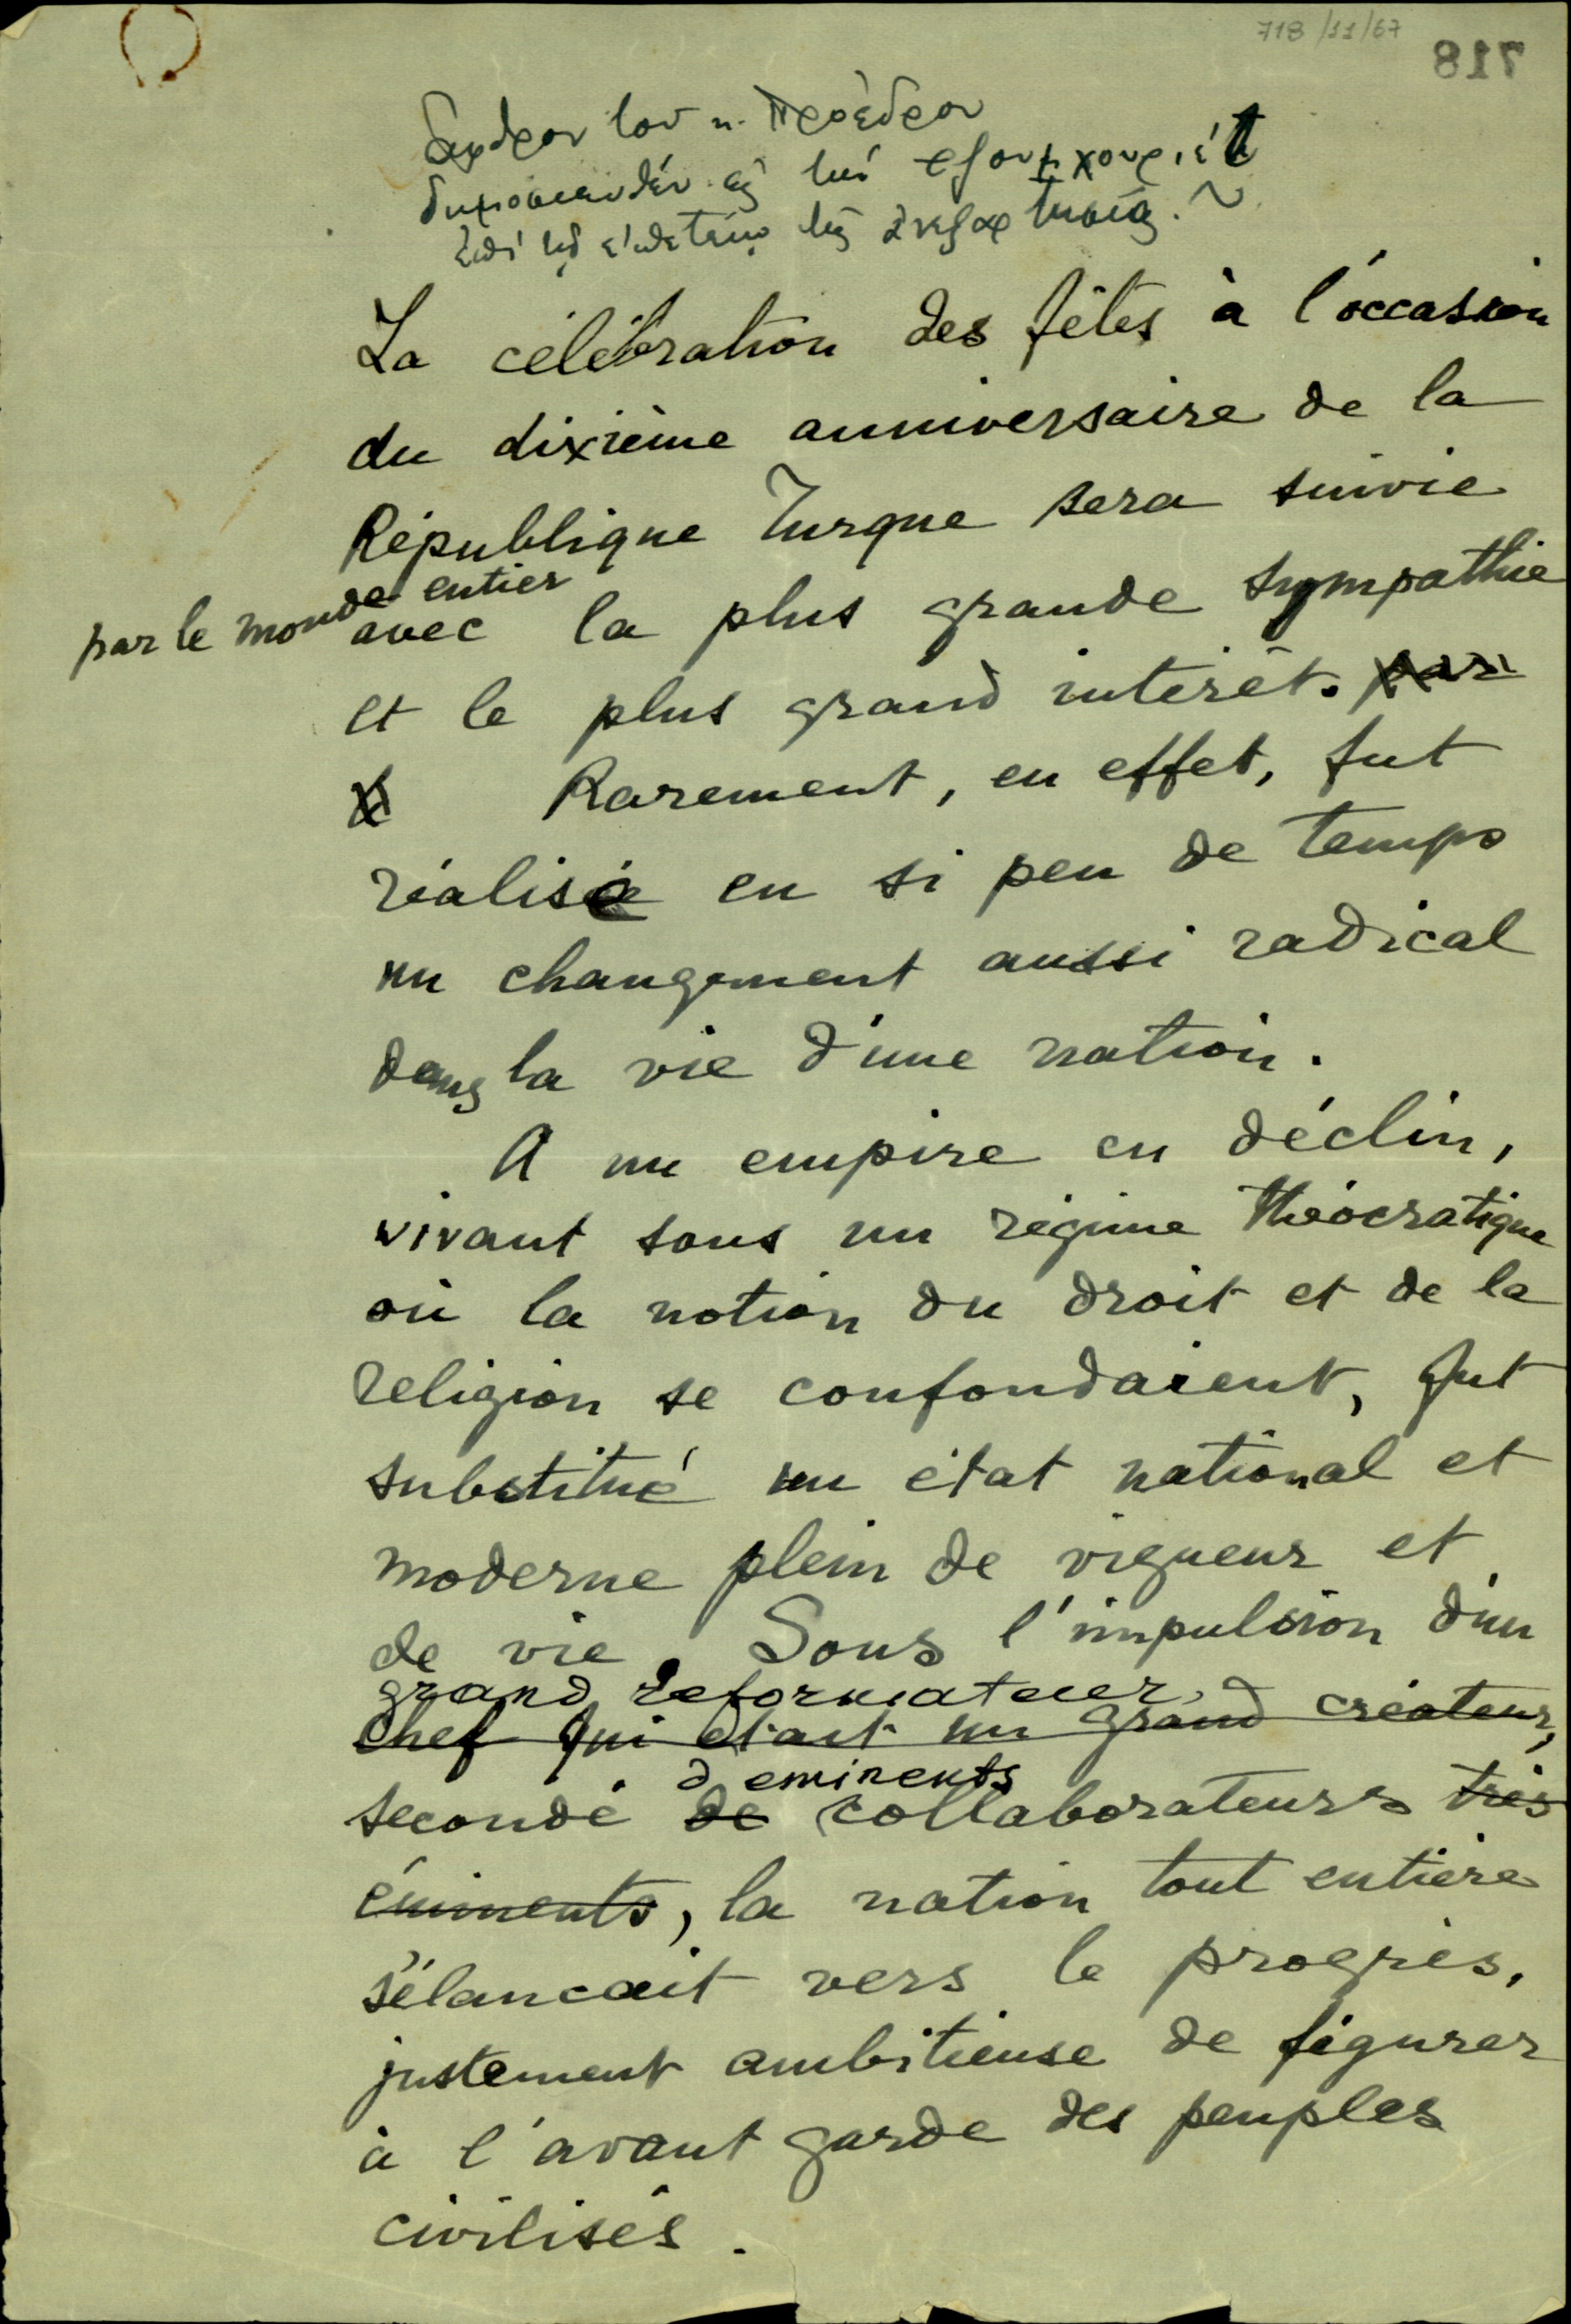 718/11/67
718
Ἄρθρον τοῦ κ. Προέδρου
δημοσιευθέν εἰς τήν
ἐπί τῇ
La célébration des fêtes à l'occassion
du dixième anniversaire de la
République Turque sera suivie
par le monde entier
avec la plus grande sympathie
et le plus grand intérêt. par
Rarement, en effet, fut
réalisé en si peu de temps
un changement aussi radical
dans la vie d'une nation.
A un empire en déclin,
vivant sous un régime théocratique
où la notion du droit et de la
religion se confondaient, fut
substitué un état national et
moderne plein de vigueur et
de vie. Sous l'impulsion d'un
grand reformateur,
chef qui était un grand créateur,
d'eminents
secondé de collaborateurs très
éminents, la nation tout entière
s'élancait vers le progrès,
justement ambitieuse de figurer
à l'avant garde des peuples
civilisés.